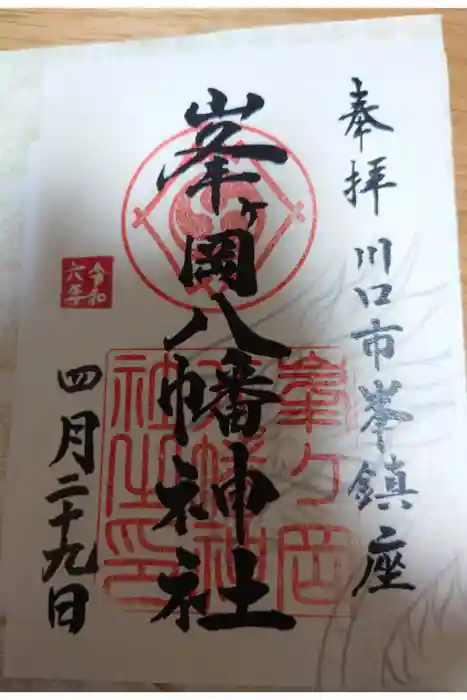 奉拝 川口市峯鎮座
峯ヶ岡八幡神社
峯ヶ岡
八幡神
社之印
令和
六年
四月二十九日